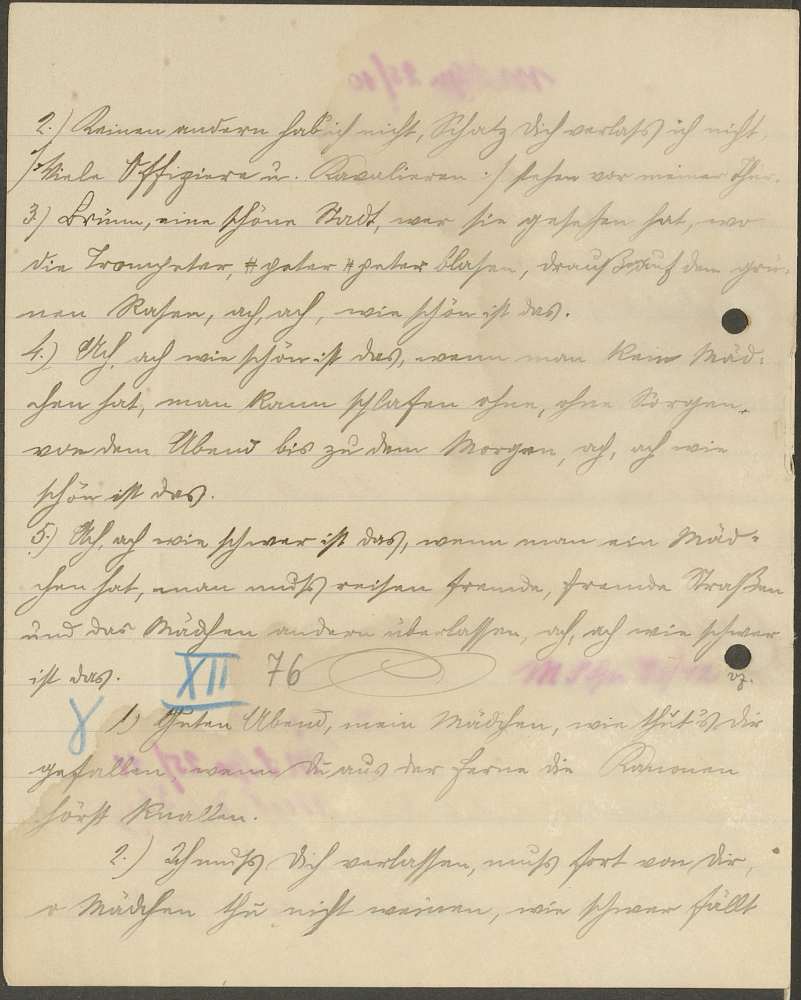 2.) Keinen andern hab' ich nicht, Schatz dich verlass ich nicht,
/: Viele Offiziere u. Kavalieren :/ stehen vor meiner Thür.
3.) Brünn, eine schöne Stadt, wer sie gesehen hat, wo
die Trompeter, # peter # peter blasen, draußen auf dem grü-
nen Rasen, ach, ach, wie schön ist das.
4.) Ach, ach wie schön ist das, wenn man kein Mäd-
chen hat, man kann schlafen ohne, ohne Sorgen,
von dem Abend bis zu dem Morgen, ach, ach wie
schön ist das.
5.) Ach, ach wie schwer ist das, wenn man ein Mäd-
chen hat, man muß reisen fremde, fremde Straßen
und das Mädchen andern überlassen, ach, ach wie schwer
ist das. XII 76
1.) Guten Abend, mein Mädchen, wie thut's dir
gefallen, wenn du aus der Ferne die Kanonen
hörst knallen.
2.) Ich muß dich verlassen, muß fort von dir,
o Mädchen thu nicht weinen, wie schwer fällt